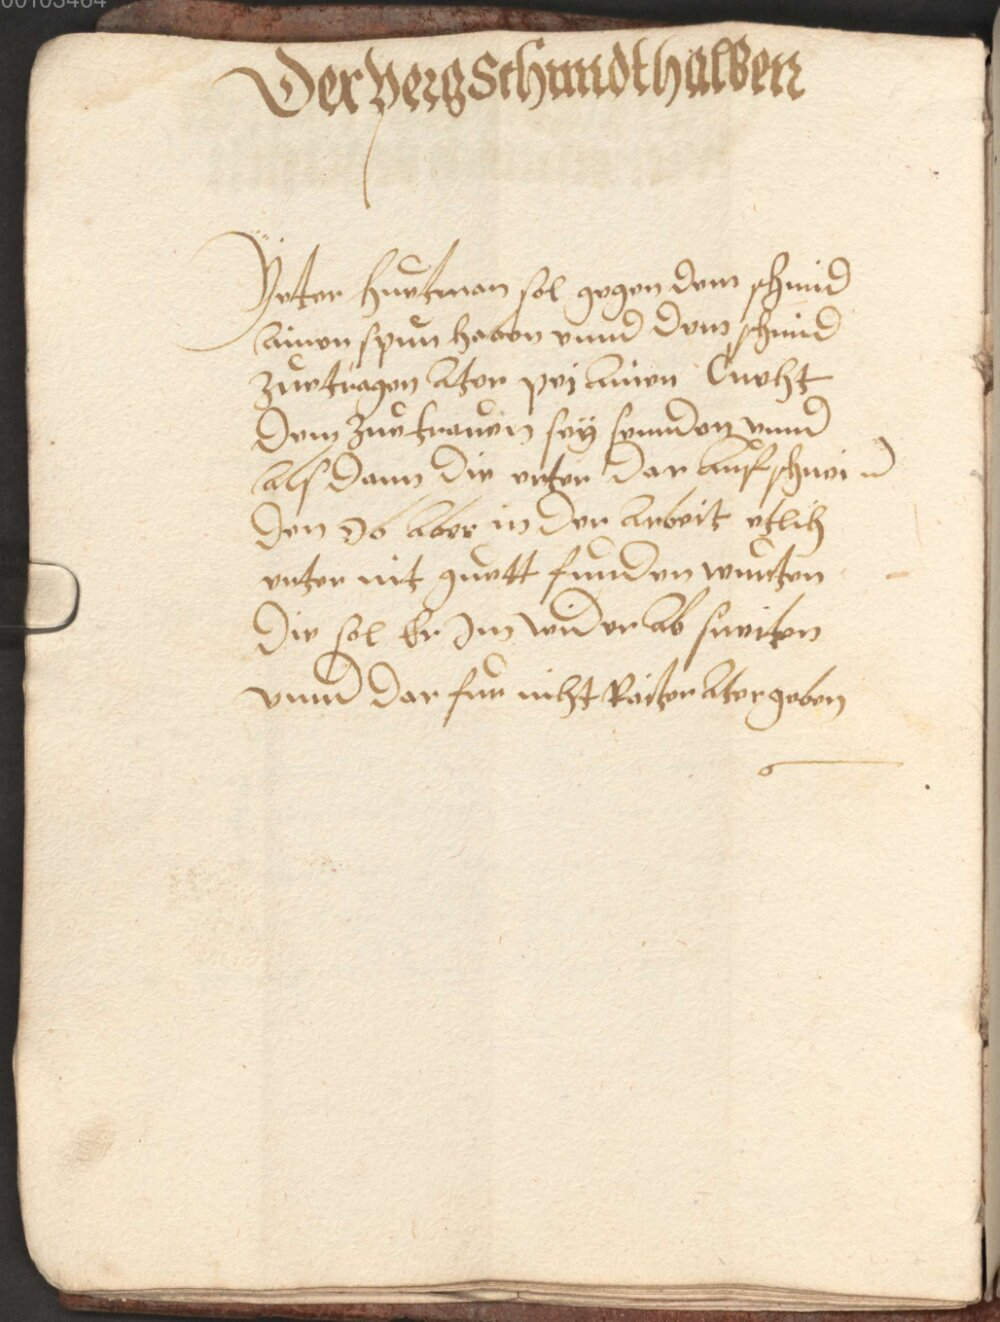 00105464
Der Perg Schmidt halben
Yeter huetman sol gegen dem schmid
ainen spun haben vnnd dem schmid
Zuetragen Ater pei ainen Knecht
dem Zuetrauen sey sennden vnnd
alsdann die örter dar auf schnei
den Do aber in der arbeit etlich
örter nit guett funden wurten
Die sol Er Im wider ab sneiten
vnnd dar fur nicht Raiten Ater geben